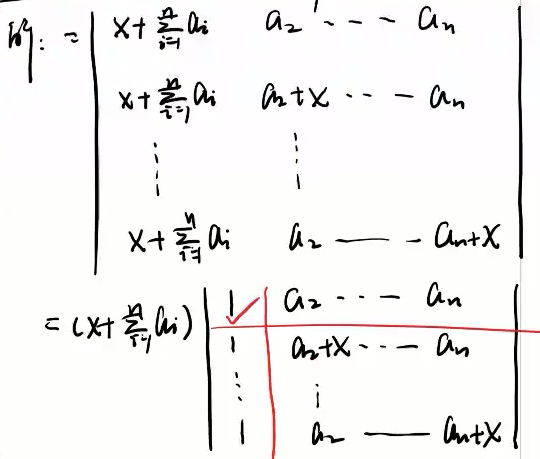 解: = | x+∑_{i=1}^{n} a_i   a_2 ′ ---- a_n |
| x+∑_{i=1}^{n} a_i   a_2+x ---- a_n |
| ⋮   ⋮ |
| x+∑_{i=1}^{n} a_i   a_2 —— - a_n+x |
= (x+∑_{i=1}^{n} a_i) | 1 ✓ a_2 ---- a_n |
| 1   a_2+x ---- a_n |
| ⋮   ⋮ |
| 1   a_2 —— a_n+x |